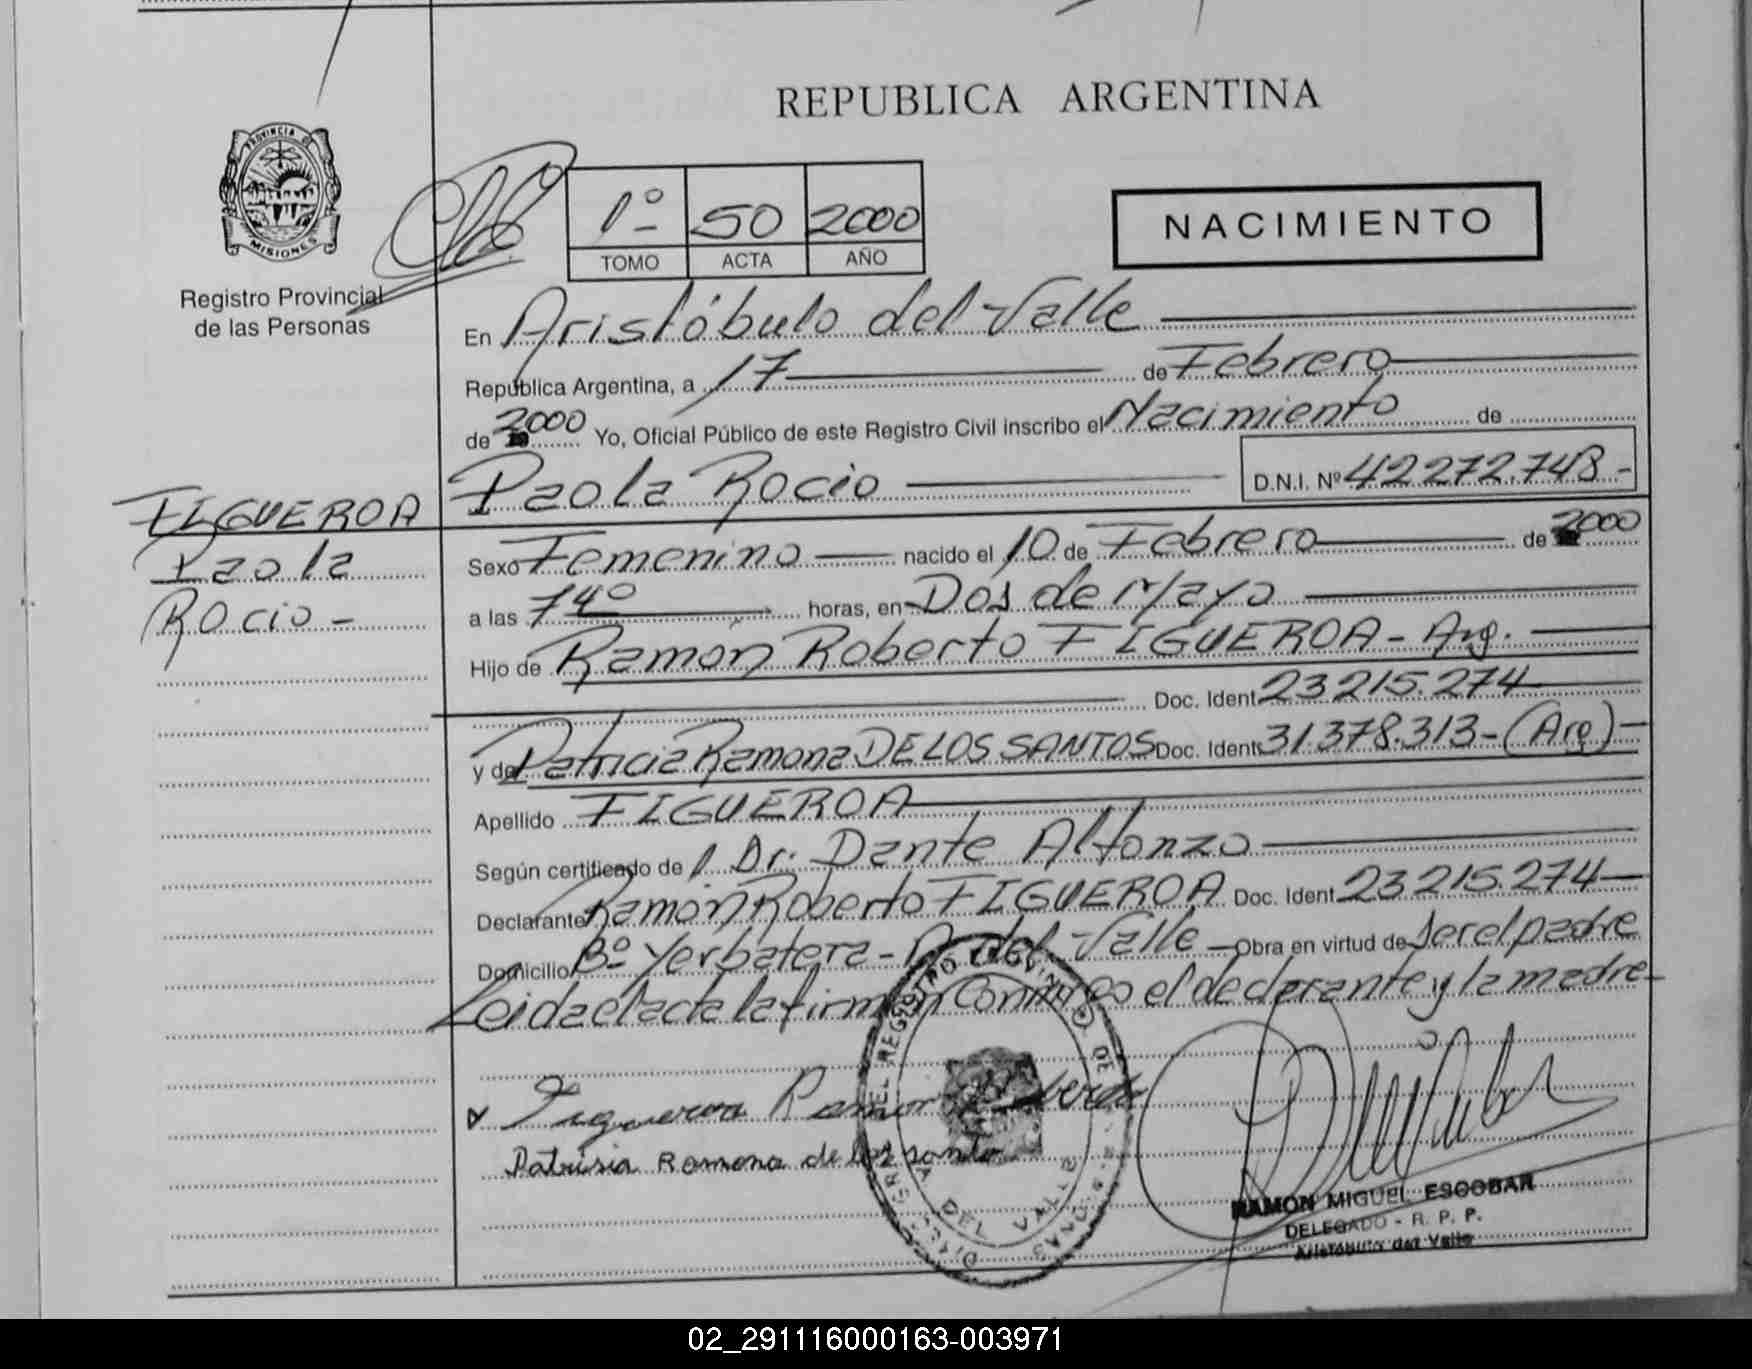 REPUBLICA ARGENTINA
PROVINCIA DE
MISIONES
Registro Provincial
de las Personas
1º 50 2000
TOMO ACTA AÑO
NACIMIENTO
En Aristóbulo del Valle
República Argentina, a 17 de Febrero
de 2000 Yo, Oficial Público de este Registro Civil inscribo el Nacimiento de
Paola Rocio D.N.I. Nº 42272.748.-
FIGUEROA
Paola
Rocio -
Sexo Femenino nacido el 10 de Febrero de 2000
a las 7 4º horas, en Dos de Mayo
Hijo de Ramón Roberto FIGUEROA - Arg.
Doc. Ident 23215.274
y de Patricia Ramona DE LOS SANTOS Doc. Ident 31.378.313 - (Arg) -
Apellido FIGUEROA
Según certificado de l Dr. Dante Alfonzo
Declarante Ramón Roberto FIGUEROA Doc. Ident 23215.274
Domicilio Bº Yerbatera - A. del Valle Obra en virtud de ser el padre
Leida el acta la firman conmigo el declarante y la madre
Figueroa Ramon Roberto
Patrisia Ramona de los santo
DEL VALLE
RAMON MIGUEL ESCOBAR
DELEGADO - R. P. P.
Aristóbulo del Valle
02_291116000163-003971